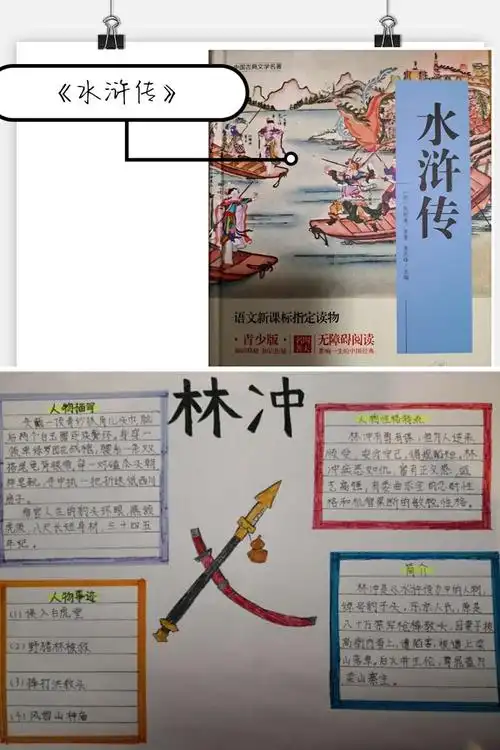 《水浒传》
中国古典文学名著
水浒传
语文新课标指定读物
·青少版·
无障碍阅读
影响一生的中国经典
林冲
人物描写
头戴一顶青纱抓角儿头巾,脑
后两个白玉圈连珠鬓环。身穿一
领单绿罗团花战袍,腰系一条双
搭尾龟背银带。穿一对磕瓜头朝
样皂靴,手中执一把折迭纸西川
扇子。
那官人生的豹头环眼,燕颔
虎须,八尺长短身材,三十四五
年纪。
人物性格特点
林冲有勇有谋,但为人逆来
顺受,安分守己,循规蹈矩。林
冲疾恶如仇,富有正义感,武
艺高强,有委曲求全的忍耐性
格和机智果断的敢做性格。
人物事迹
(1)误入白虎堂
(2)野猪林被救
(3)棒打洪教头
(4)风雪山神庙
简介
林冲是《水浒传》中的人物,
绰号豹子头,东京人氏,原是
八十万禁军枪棒教头,因妻子被
高衙内看上,遭陷害,被逼上梁
山落草。后火并王伦,尊晁盖为
梁山寨主。